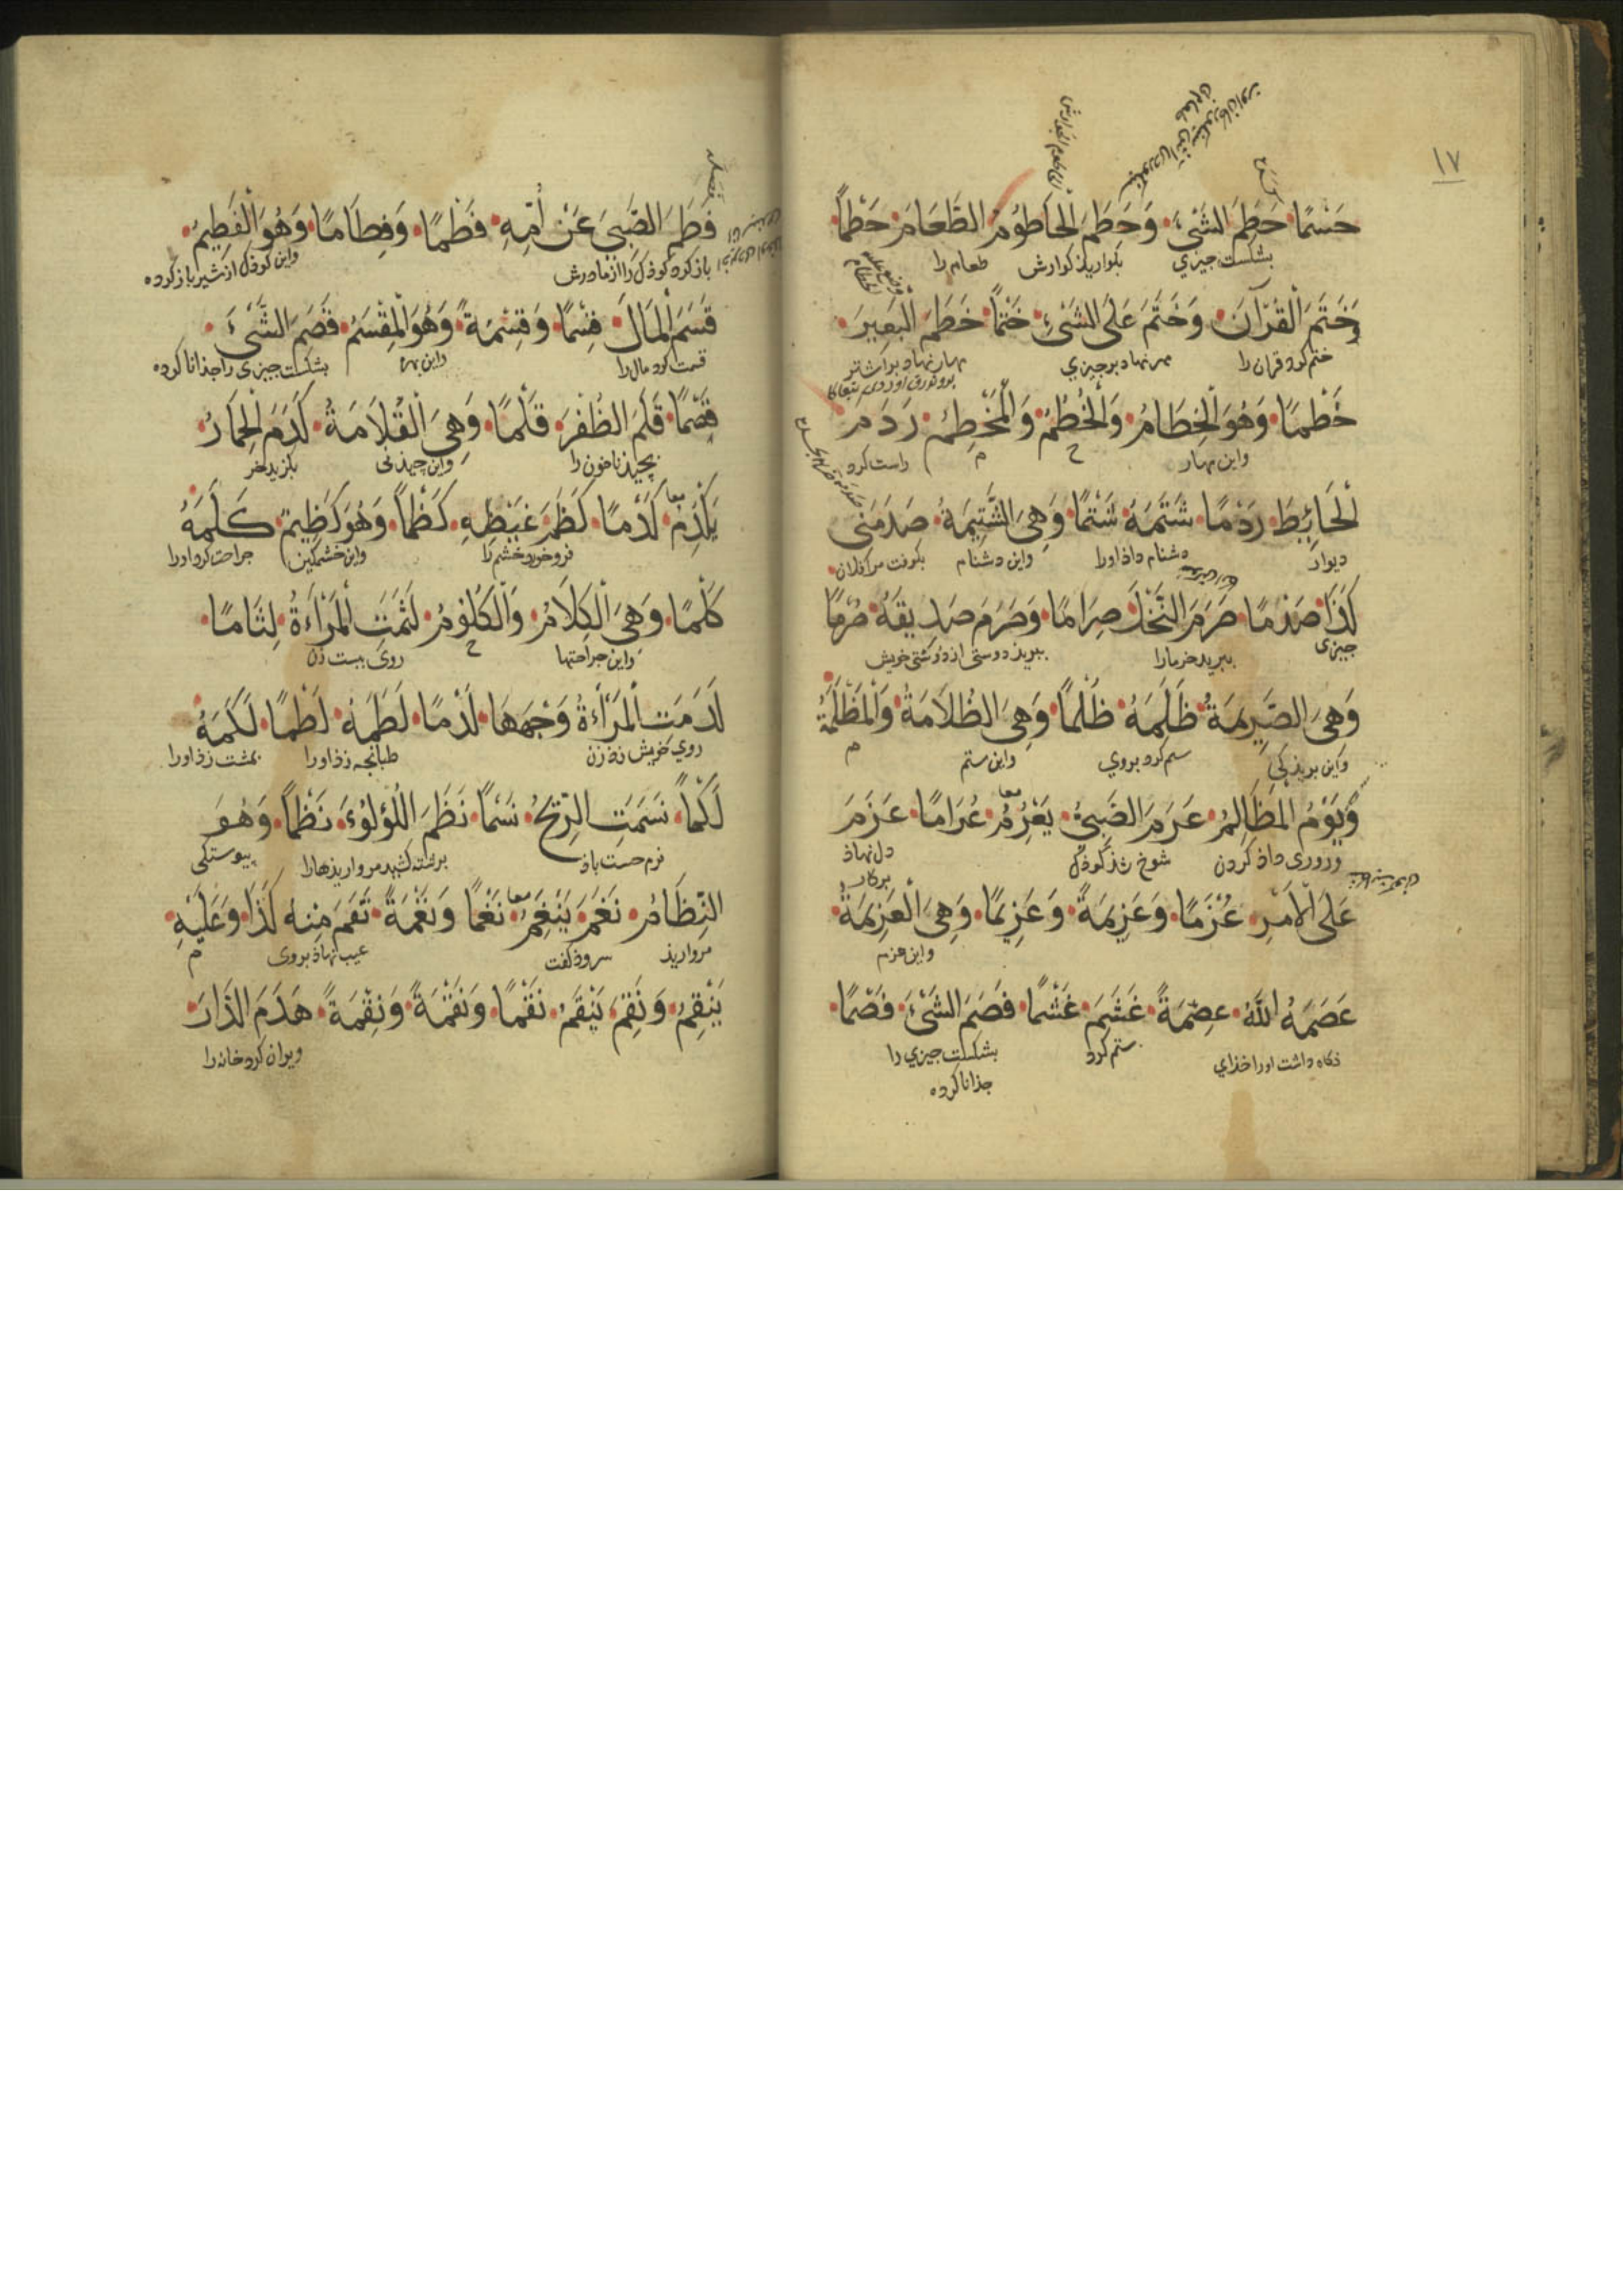 ١٧
حَسْمًا حَطَمَ الشَّيْءَ وَحَطَمَ الْحَاطُومُ الطَّعَامَ حَطْمًا
بشکست چیزی بکواریذ کوارش طعام را
وَخَتَمَ الْقُرْآنَ وَخَتَمَ عَلَى الشَّيْءِ خَتْمًا خَطَمَ الْبَعِيرَ
ختم کرد قران را مهر نهاد بر چیزی مهار نهاد بر اشتر
خَطْمًا وَهُوَ الْخِطَامُ وَالْخُطُمُ وَالْمَخْطِمُ رَدَمَ
واین مهار ح م راست کرد
الْحَائِطَ رَدْمًا شَتَمَهُ شَتْمًا وَهِيَ الشَّتِيمَةُ صَدَمَنِي
دیوار دشنام داذ اورا واین دشنام بکوفت مرا فلان
كَذَا صَدْمًا صَرَمَ النَّخْلَ صِرَامًا وَصَرَمَ صَدِيقَهُ صُرْمًا
چیزی ببرید خرما را ببریذ دوستی از دوستی خویش
وَهِيَ الصَّرِيمَةُ ظَلَمَهُ ظُلْمًا وَهِيَ الظُّلَامَةُ وَالْمَظْلَمَةُ
واین بریذکی ستم کرد بروی واین ستم م
وَيَوْمُ الْمَظَالِمِ عَرَمَ الصَّبِيُّ يَعْرُمُ عُرَامًا عَزَمَ
وروزی داذ کردن شوخ شذ کوذک دل نهاذ بر کار
عَلَى الْأَمْرِ عُزْمًا وَعَزِيمَةً وَعَزِيمًا وَهِيَ الْعَزِيمَةُ
واین عزم
عَصَمَهُ اللّٰهُ عِصْمَةً غَشَمَ غَشْمًا فَصَمَ الشَّيْءَ فَصْمًا
نکاه داشت اورا خذای ستم کرد بشکست چیزی را
جذا ناکرده
فَطَمَ الصَّبِيَّ عَنْ أُمِّهِ فَطْمًا وَفِطَامًا وَهُوَ الْفَطِيمُ
باز کرد کوذک را از مادرش واین کوذک از شیر باز کرده
قَسَمَ الْمَالَ قِسْمًا وَقِسْمَةً وَهُوَ الْمِقْسَمُ قَصَمَ الشَّيْءَ
قسمت کرد مال را واین بهره بشکست چیزی را جذا ناکرده
قَصْمًا قَلَمَ الظُّفْرَ قَلْمًا وَهِيَ الْقُلَامَةُ كَدَمَ الْحِمَارُ
بچیذ ناخون را واین چیذنی بکزید خر
يَكْدِمُ كَدْمًا كَظَمَ غَيْظَهُ كَظْمًا وَهُوَ كَظِيمٌ كَلَمَهُ
فرو خورد خشم را واین خشمکین جراحت کرد اورا
كَلْمًا وَهِيَ الْكِلَامُ وَالْكُلُومُ لَثَمَتِ الْمَرْأَةُ لِثَامًا
واین جراحتها ح روی ببست زن
لَدَمَتِ الْمَرْأَةُ وَجْهَهَا لَدْمًا لَطَمَهُ لَطْمًا لَكَمَهُ
روی خویش زذ زن طبانجه زذ اورا بمشت زذ اورا
لَكْمًا نَسَمَتِ الرِّيحُ نَسْمًا نَظَمَ اللُّؤْلُوءَ نَظْمًا وَهُوَ
نرم جست باذ برشته کشید مرواریذها را پیوستکی
النِّظَامُ نَغَمَ يَنْغِمُ نَغْمًا وَنَغْمَةً نَقَمَ مِنْهُ كَذَا وَعَلَيْهِ
مرواریذ سروذ کفت عیب نهاذ بروی م
يَنْقِمُ وَنَقِمَ يَنْقَمُ نَقْمًا وَنَقْمَةً وَنِقْمَةً هَدَمَ الدَّارَ
ویران کرد خانه را